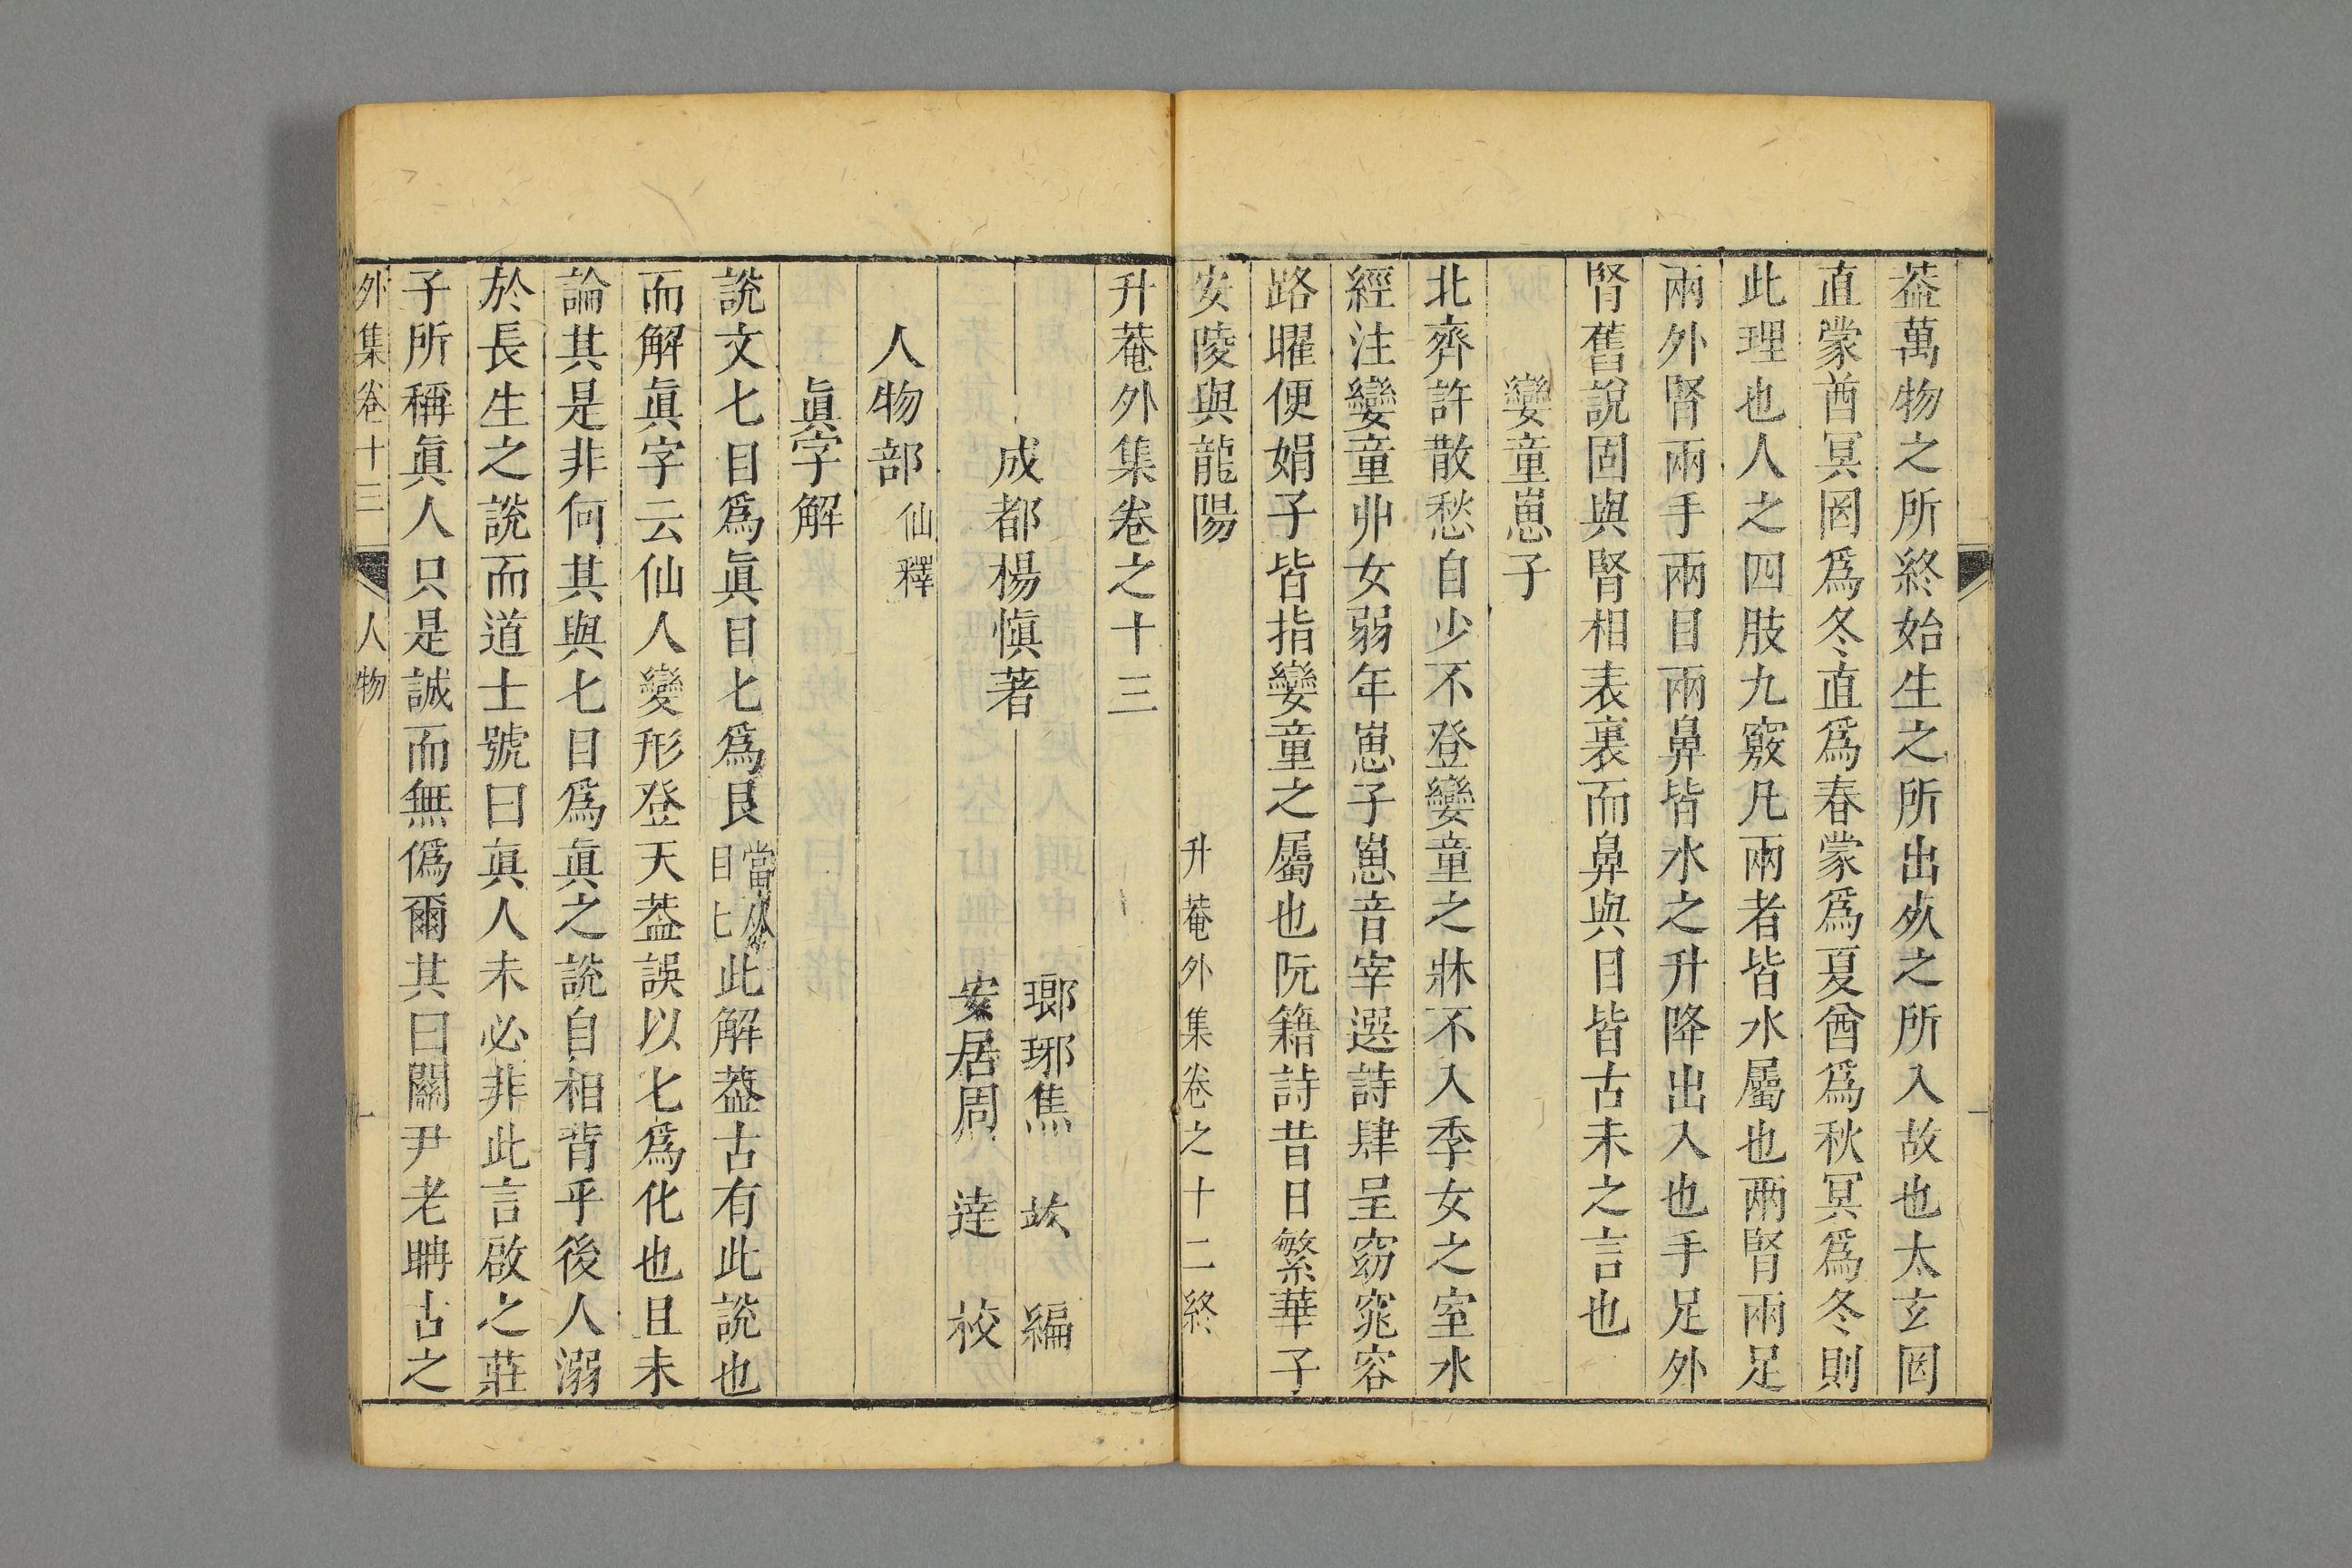 葢萬物之所終始生之所出夊之所入故也太玄罔
直蒙酋冥罔爲冬直爲春蒙爲夏酋爲秋冥爲冬則
此理也人之四肢九竅凡兩者皆水屬也兩腎兩足
兩外腎兩手兩目兩鼻皆水之升降出入也手足外
腎舊說固與腎相表裏而鼻與目皆古未之言也
孌童崽子
北齊許散愁自少不登孌童之牀不入季女之室水
經注孌童丱女弱年崽子崽音宰選詩肆呈窈窕容
路曜便娟子皆指孌童之屬也阮籍詩昔日繁華子
安陵與龍陽
升菴外集卷之十二終
升菴外集卷之十三
成都楊愼著
瑯琊焦竑編
安居周達校
人物部仙釋
眞字解
說文七目爲眞目七爲艮當从目匕此解葢古有此說也
而解眞字云仙人變形登天葢誤以七爲化也且未
論其是非何其與七目爲眞之說自相背乎後人溺
於長生之說而道士號曰眞人未必非此言啟之莊
子所稱眞人只是誠而無僞爾其曰關尹老聃古之
外集卷十三
人物
一